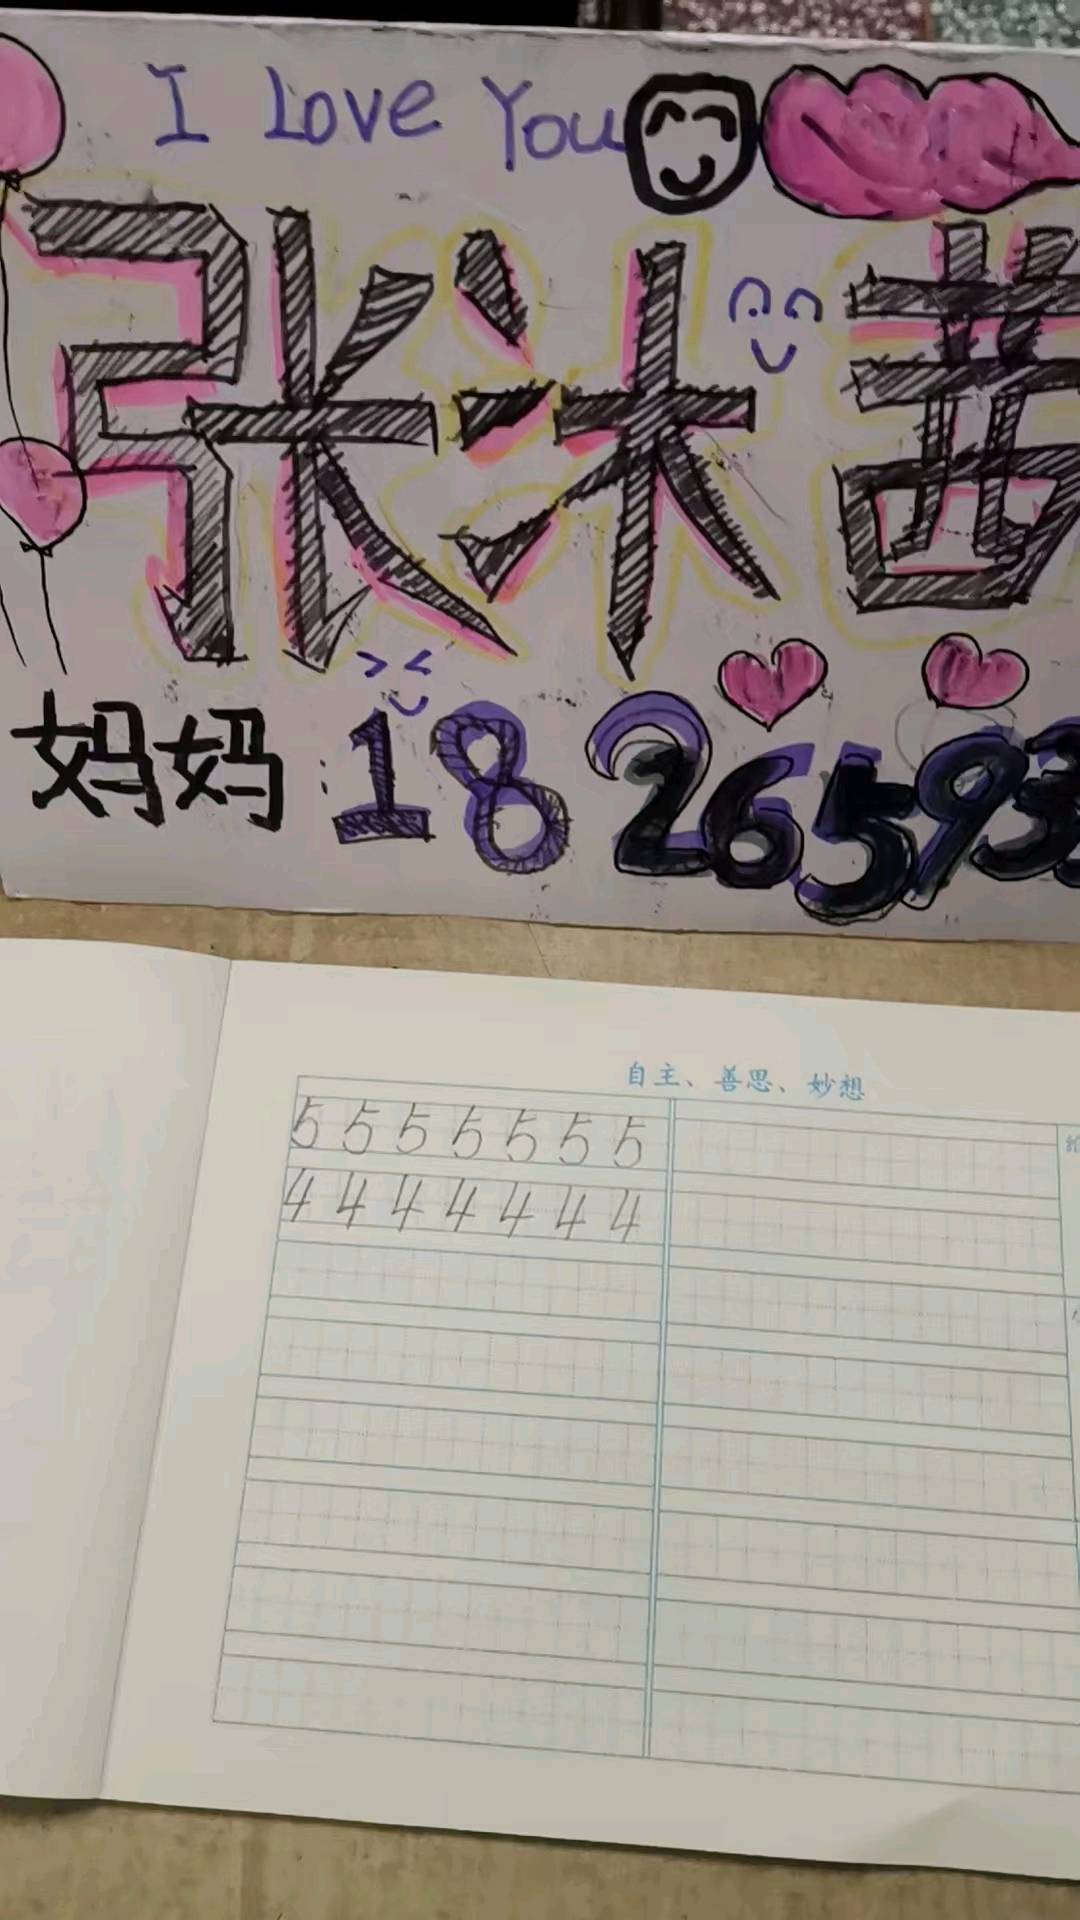 I Love You
张沐茜
妈妈:1826593
自主、善思、妙想
5 5 5 5 5 5 5
4 4 4 4 4 4 4